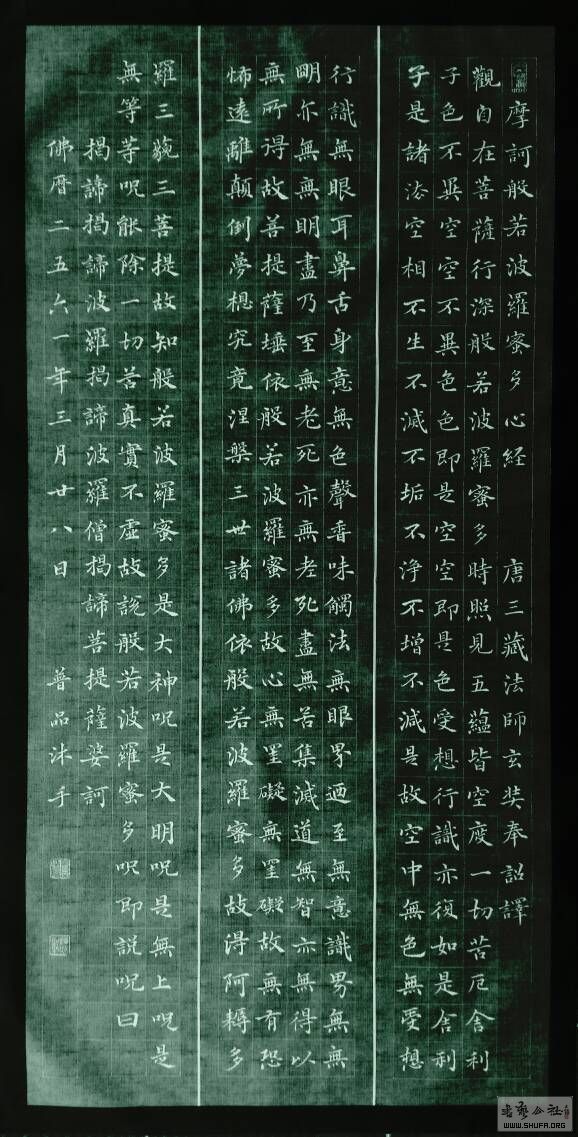 摩訶般若波羅蜜多心経 唐三藏法師玄奘奉詔譯
觀自在菩薩行深般若波羅蜜多時照見五蘊皆空度一切苦厄舍利
子色不異空空不異色色即是空空即是色受想行識亦復如是舍利
子是諸法空相不生不滅不垢不淨不增不減是故空中無色無受想
行識無眼耳鼻舌身意無色聲香味觸法無眼界迺至無意識界無無
明亦無無明盡乃至無老死亦無老死盡無苦集滅道無智亦無得以
無所得故菩提薩埵依般若波羅蜜多故心無罣礙無罣礙故無有恐
怖遠離顛倒夢想究竟涅槃三世諸佛依般若波羅蜜多故得阿耨多
羅三藐三菩提故知般若波羅蜜多是大神呪是大明呪是無上呪是
無等等呪能除一切苦真實不虛故說般若波羅蜜多呪即說呪曰
揭諦揭諦波羅揭諦波羅僧揭諦菩提薩婆訶
佛曆二五六一年三月廿八日 普品沐手
書藝公社
WWW.SHUFA.ORG